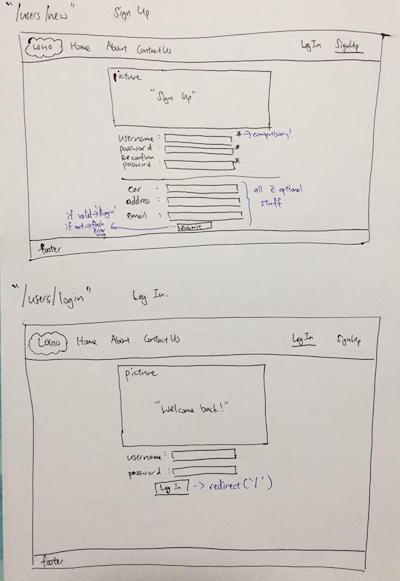 "/users/new" Sign Up
LOGO Home About Contact Us Log In Sign Up
picture
"Sign Up"
username : * → compulsory!
password : *
Reconfirm
password : *
car :
address :
email :
all optional
stuff
if valid → 'login'
if not → flash
error
submit
footer
"/users/login" Log In.
LOGO Home About Contact Us Log In Sign Up
picture
"Welcome back!"
username :
password :
Log In → redirect('/')
footer